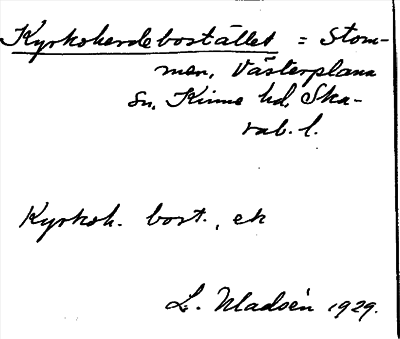 Kyrkoherdebostället = Stom-
men, Västerplana
sn, Kinne hd, Ska-
rab. l.
Kyrkoh. bost., ek
L. Madsén 1929.